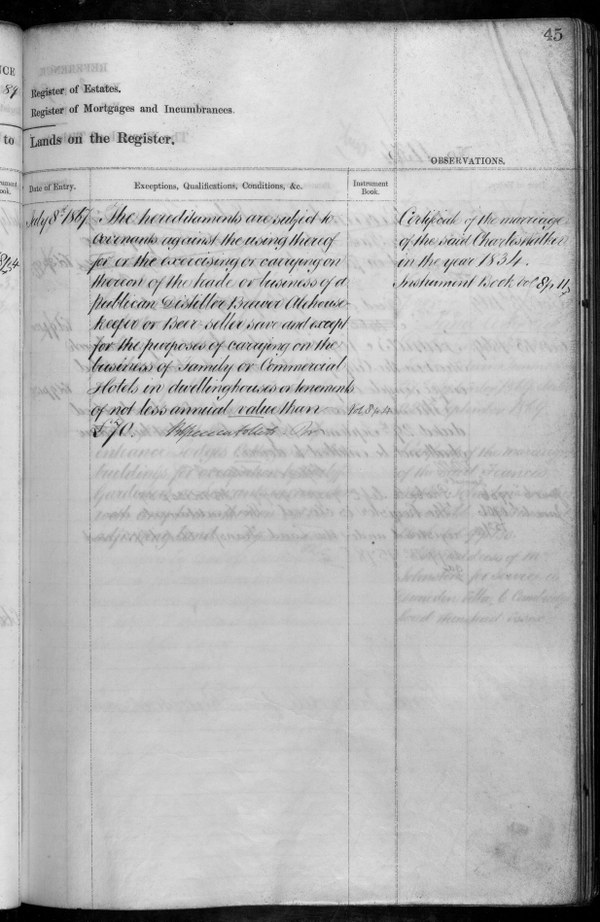 45
NCE
89
Register of Estates.
Register of Mortgages and Incumbrances.
to
Lands on the Register.
OBSERVATIONS.
Date of Entry.
Exceptions, Qualifications, Conditions, &c.
Instrument Book.
July 8th 1867
The hereditaments are subject to
Covenants against the using thereof
for or the exercising or carrying on
thereon of the trade or business of a
publican Distiller Brewer Alehouse-
keeper or Beer seller save and except
for the purposes of carrying on the
business of Family or Commercial
Hotels in dwellinghouses or tenements
of not less annual value than
£70.
Certificate of the marriage
of the said Charles
in the year 1834.
Instrument Book vol 8 p 113